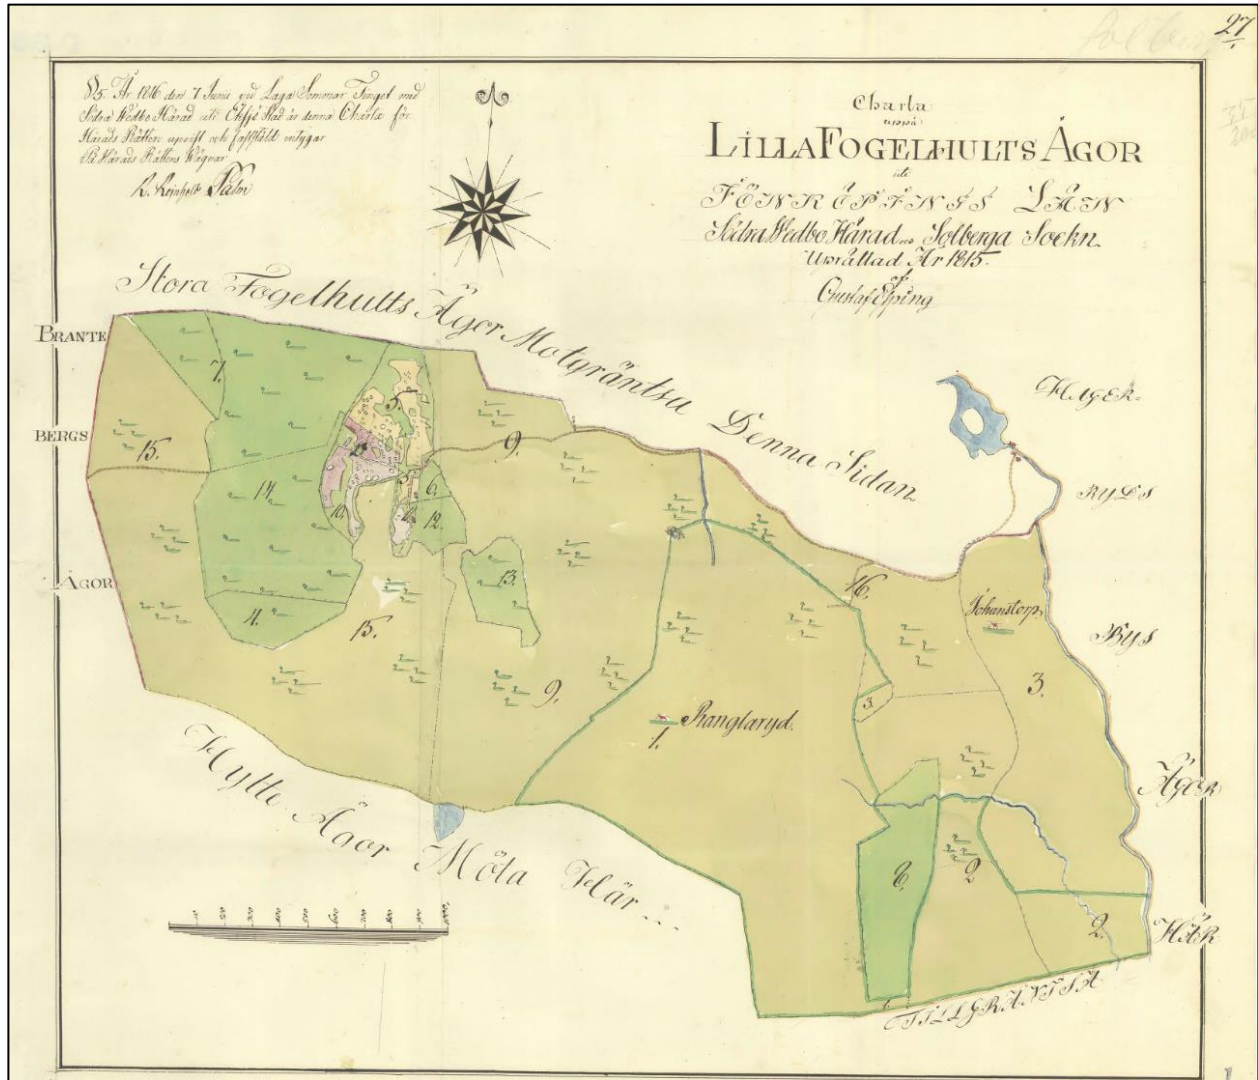 27
№5. År 1816 den 7 Junii vid Laga Sommar Tinget med
Södra Wedbo Härad uti Eksjö Stad är denna Charta för
Härads Rätten upvist och fastställd intygar
På Härads Rättens Wägnar
Charta
uppå
LILLA FOGELHULTS ÄGOR
uti
JÖNKÖPINGS LÄN
Södra Wedbo Härad och Solberga Sockn.
Uprättad År 1815.
af
Gustaf Epping
Stora Fogelhults Ägor Motgräntsa Denna Sidan
BRANTE
BERGS
ÄGOR
HAGER=
RYDS
BYS
ÄGOR
HÄR
TILLGRÄNTSA
Hytte Ägor Möta Här...
7.
15.
14.
4.
5.
5.
10.
6.
12.
13.
15.
9.
9.
16.
Johanstorp.
3.
3.
Ranglaryd.
1.
8.
2
2.